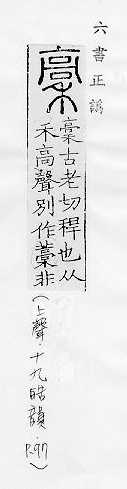 六書正譌
稾
稾古老切稈也从
禾高聲別作藁非
(上聲·十九皓韻、P.97)